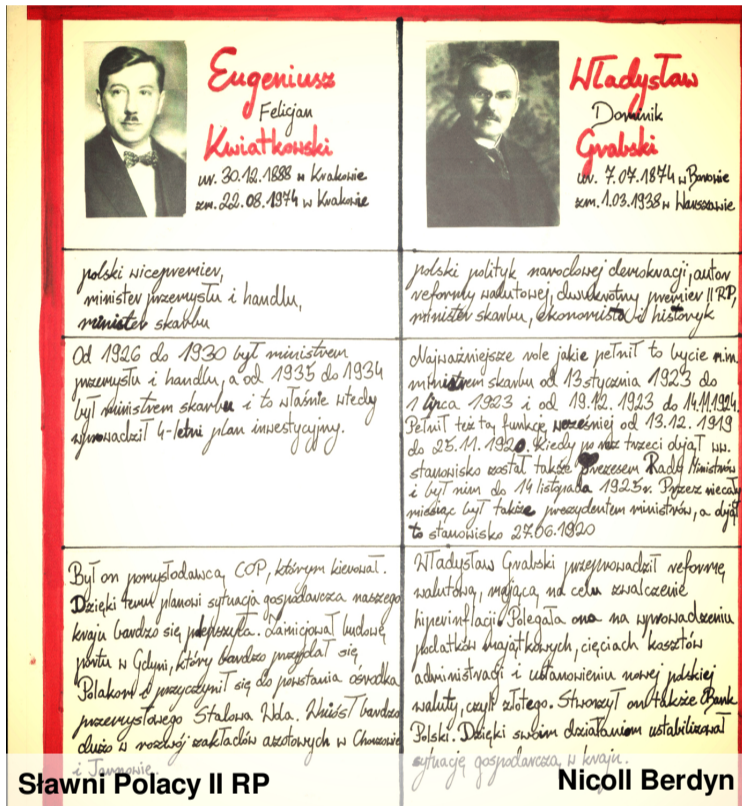 Eugeniusz
Felicjan
Kwiatkowski
ur. 30.12.1888 w Krakowie
zm. 22.08.1974 w Krakowie
polski wicepremier,
minister przemysłu i handlu,
minister skarbu
Od 1926 do 1930 był ministrem
przemysłu i handlu, a od 1935 do 1934
był ministrem skarbu i to właśnie wtedy
wprowadził 4-letni plan inwestycyjny.
Był on pomysłodawcą COP, którym kierował.
Dzięki temu planowi sytuacja gospodarcza naszego
kraju bardzo się polepszyła. Zainicjował budowę
portu w Gdyni, który bardzo przydał się
Polakom i przyczynił się do powstania ośrodka
przemysłowego Stalowa Wola. Wniósł bardzo
dużo w rozwój zakładów azotowych w Chorzowie
i Tarnowie.
Władysław
Dominik
Grabski
ur. 7.07.1874 w Borowie
zm. 1.03.1938 w Warszawie
polski polityk narodowej demokracji, autor
reformy walutowej, dwukrotny premier II RP,
minister skarbu, ekonomista i historyk
Najważniejsze role jakie pełnił to bycie m.in.
ministrem skarbu od 13 stycznia 1923 do
1 lipca 1923 i od 19.12. 1923 do 14.11.1924.
Pełnił też tą funkcję wcześniej od 13.12. 1919
do 25.11.1920. Kiedy po raz trzeci objął ww.
stanowisko został także Prezesem Rady Ministrów
i był nim do 14 listopada 1925r. Przez niecały
miesiąc był także prezydentem ministrów, a objął
to stanowisko 27.06.1920
Władysław Grabski przeprowadził reformę
walutową, mającą na celu zwalczenie
hiperinflacji. Polegała ona na wprowadzeniu
podatków majątkowych, cięciach kosztów
administracji i ustanowieniu nowej polskiej
waluty, czyli złotego. Stworzył on także Bank
Polski. Dzięki swoim działaniom ustabilizował
sytuację gospodarczą w kraju.
Sławni Polacy II RP
Nicoll Berdyn